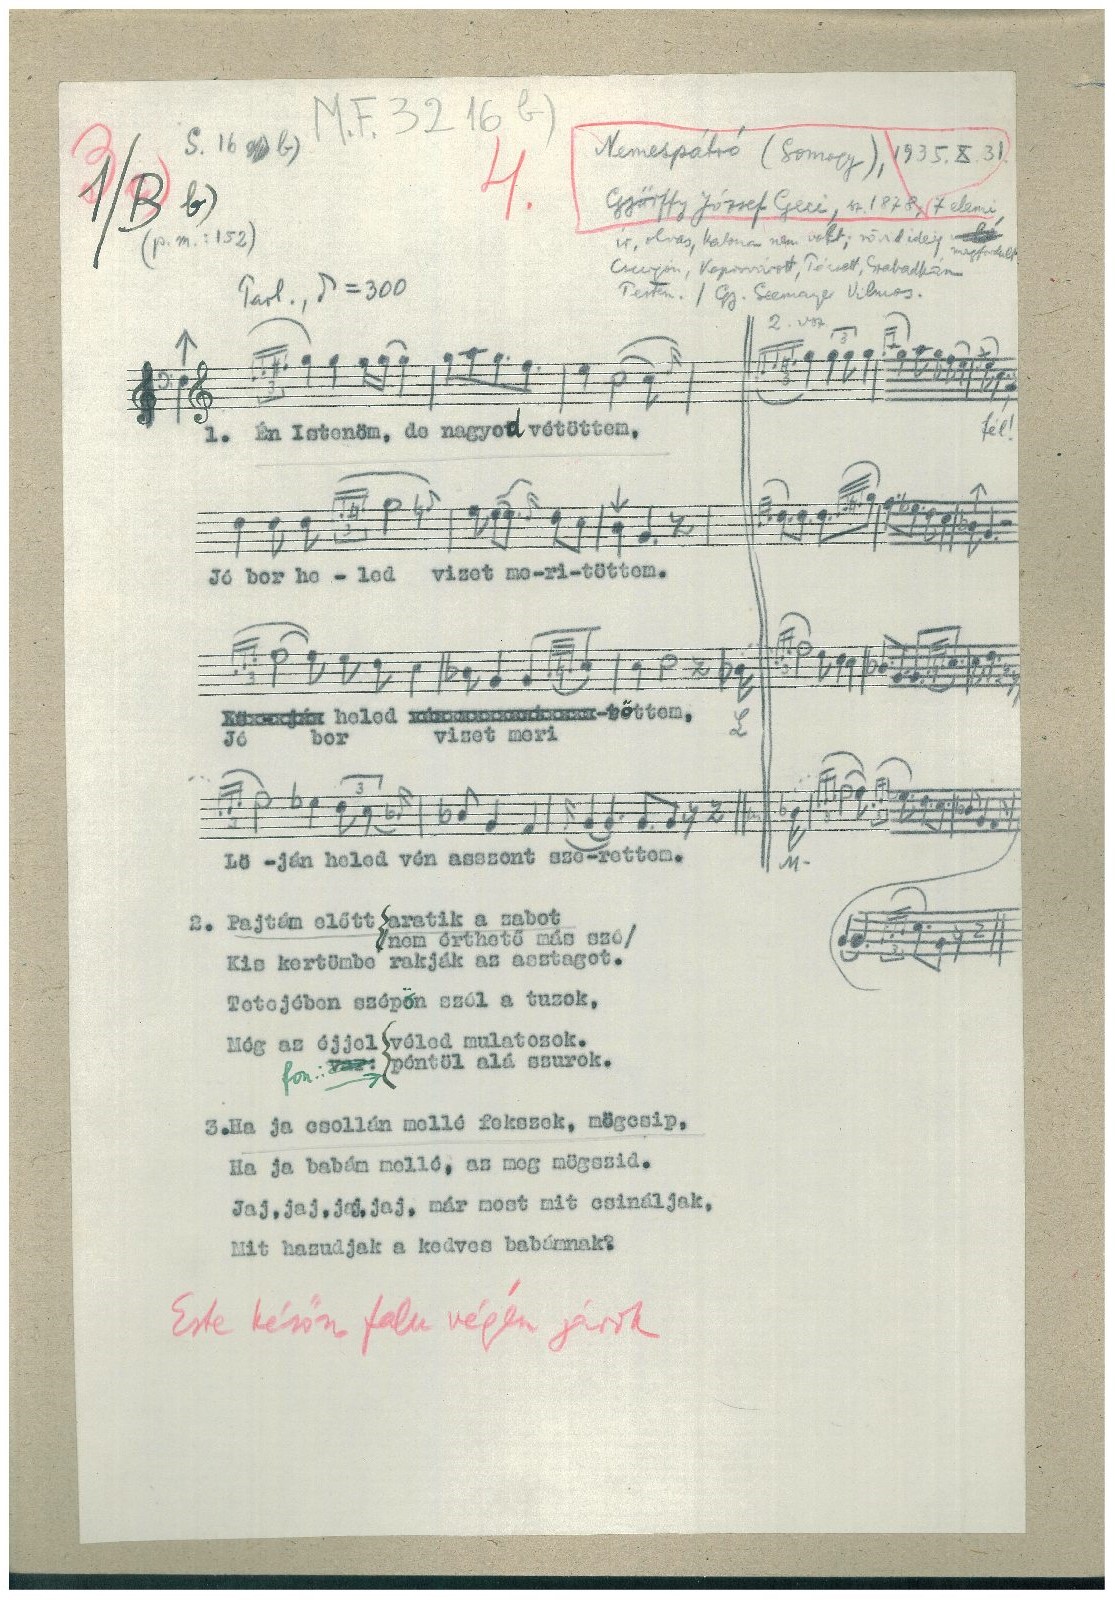 M.F. 3216 b)
S. 16 b)
3
1/B b)
(p.m.:152)
4.
Nemespátró (Somogy), 1935. X. 31.
Györffy József Geci, sz. 1878, 7 elemi,
ír, olvas, katona nem volt; rövid ideig megfordult
Csurgón, Kaposvárott, Técsett, Szabadkán
Pesten. / Gy. Seemayer Vilmos.
Parl., ♪ = 300
2. vsz.
1. Én Istenöm, de nagyod vétöttem,
fél!
Jó bor he - led vizet me-ri-töttem.
heled -töttem,
Jó bor vizet meri
Lö -ján heled vén asszont sze-rettem.
M-
2. Pajtám előtt aratik a zabot
nem érthető más szó/
Kis kertömbe rakják az asztagot.
Tetejében szépön szól a tuzok,
Még az éjjel véled mulatozok.
fon.: var: póntöl alá szurok.
3.Ha ja csollán mellé fekszek, mögcsip,
Ha ja babám mellé, az meg mögszid.
Jaj,jaj,jaj,jaj, már most mit csináljak,
Mit hazudjak a kedves babámnak?
Este későn falu végén járok